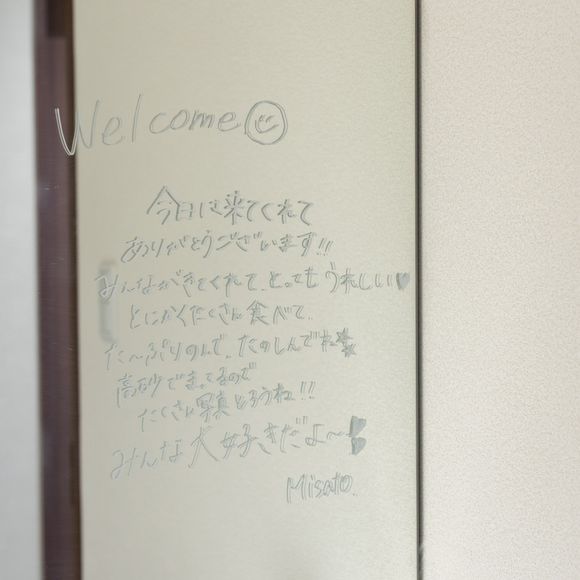 Welcome
今日は来てくれて
ありがとうございます!!
みんながきてくれて、とってもうれしい♥
とにかくたくさん食べて、
た〜っぷりのんで、たのしんでね
高砂でまってるので
たくさん写真とろうね!!
みんな大好きだよ〜
Misato.